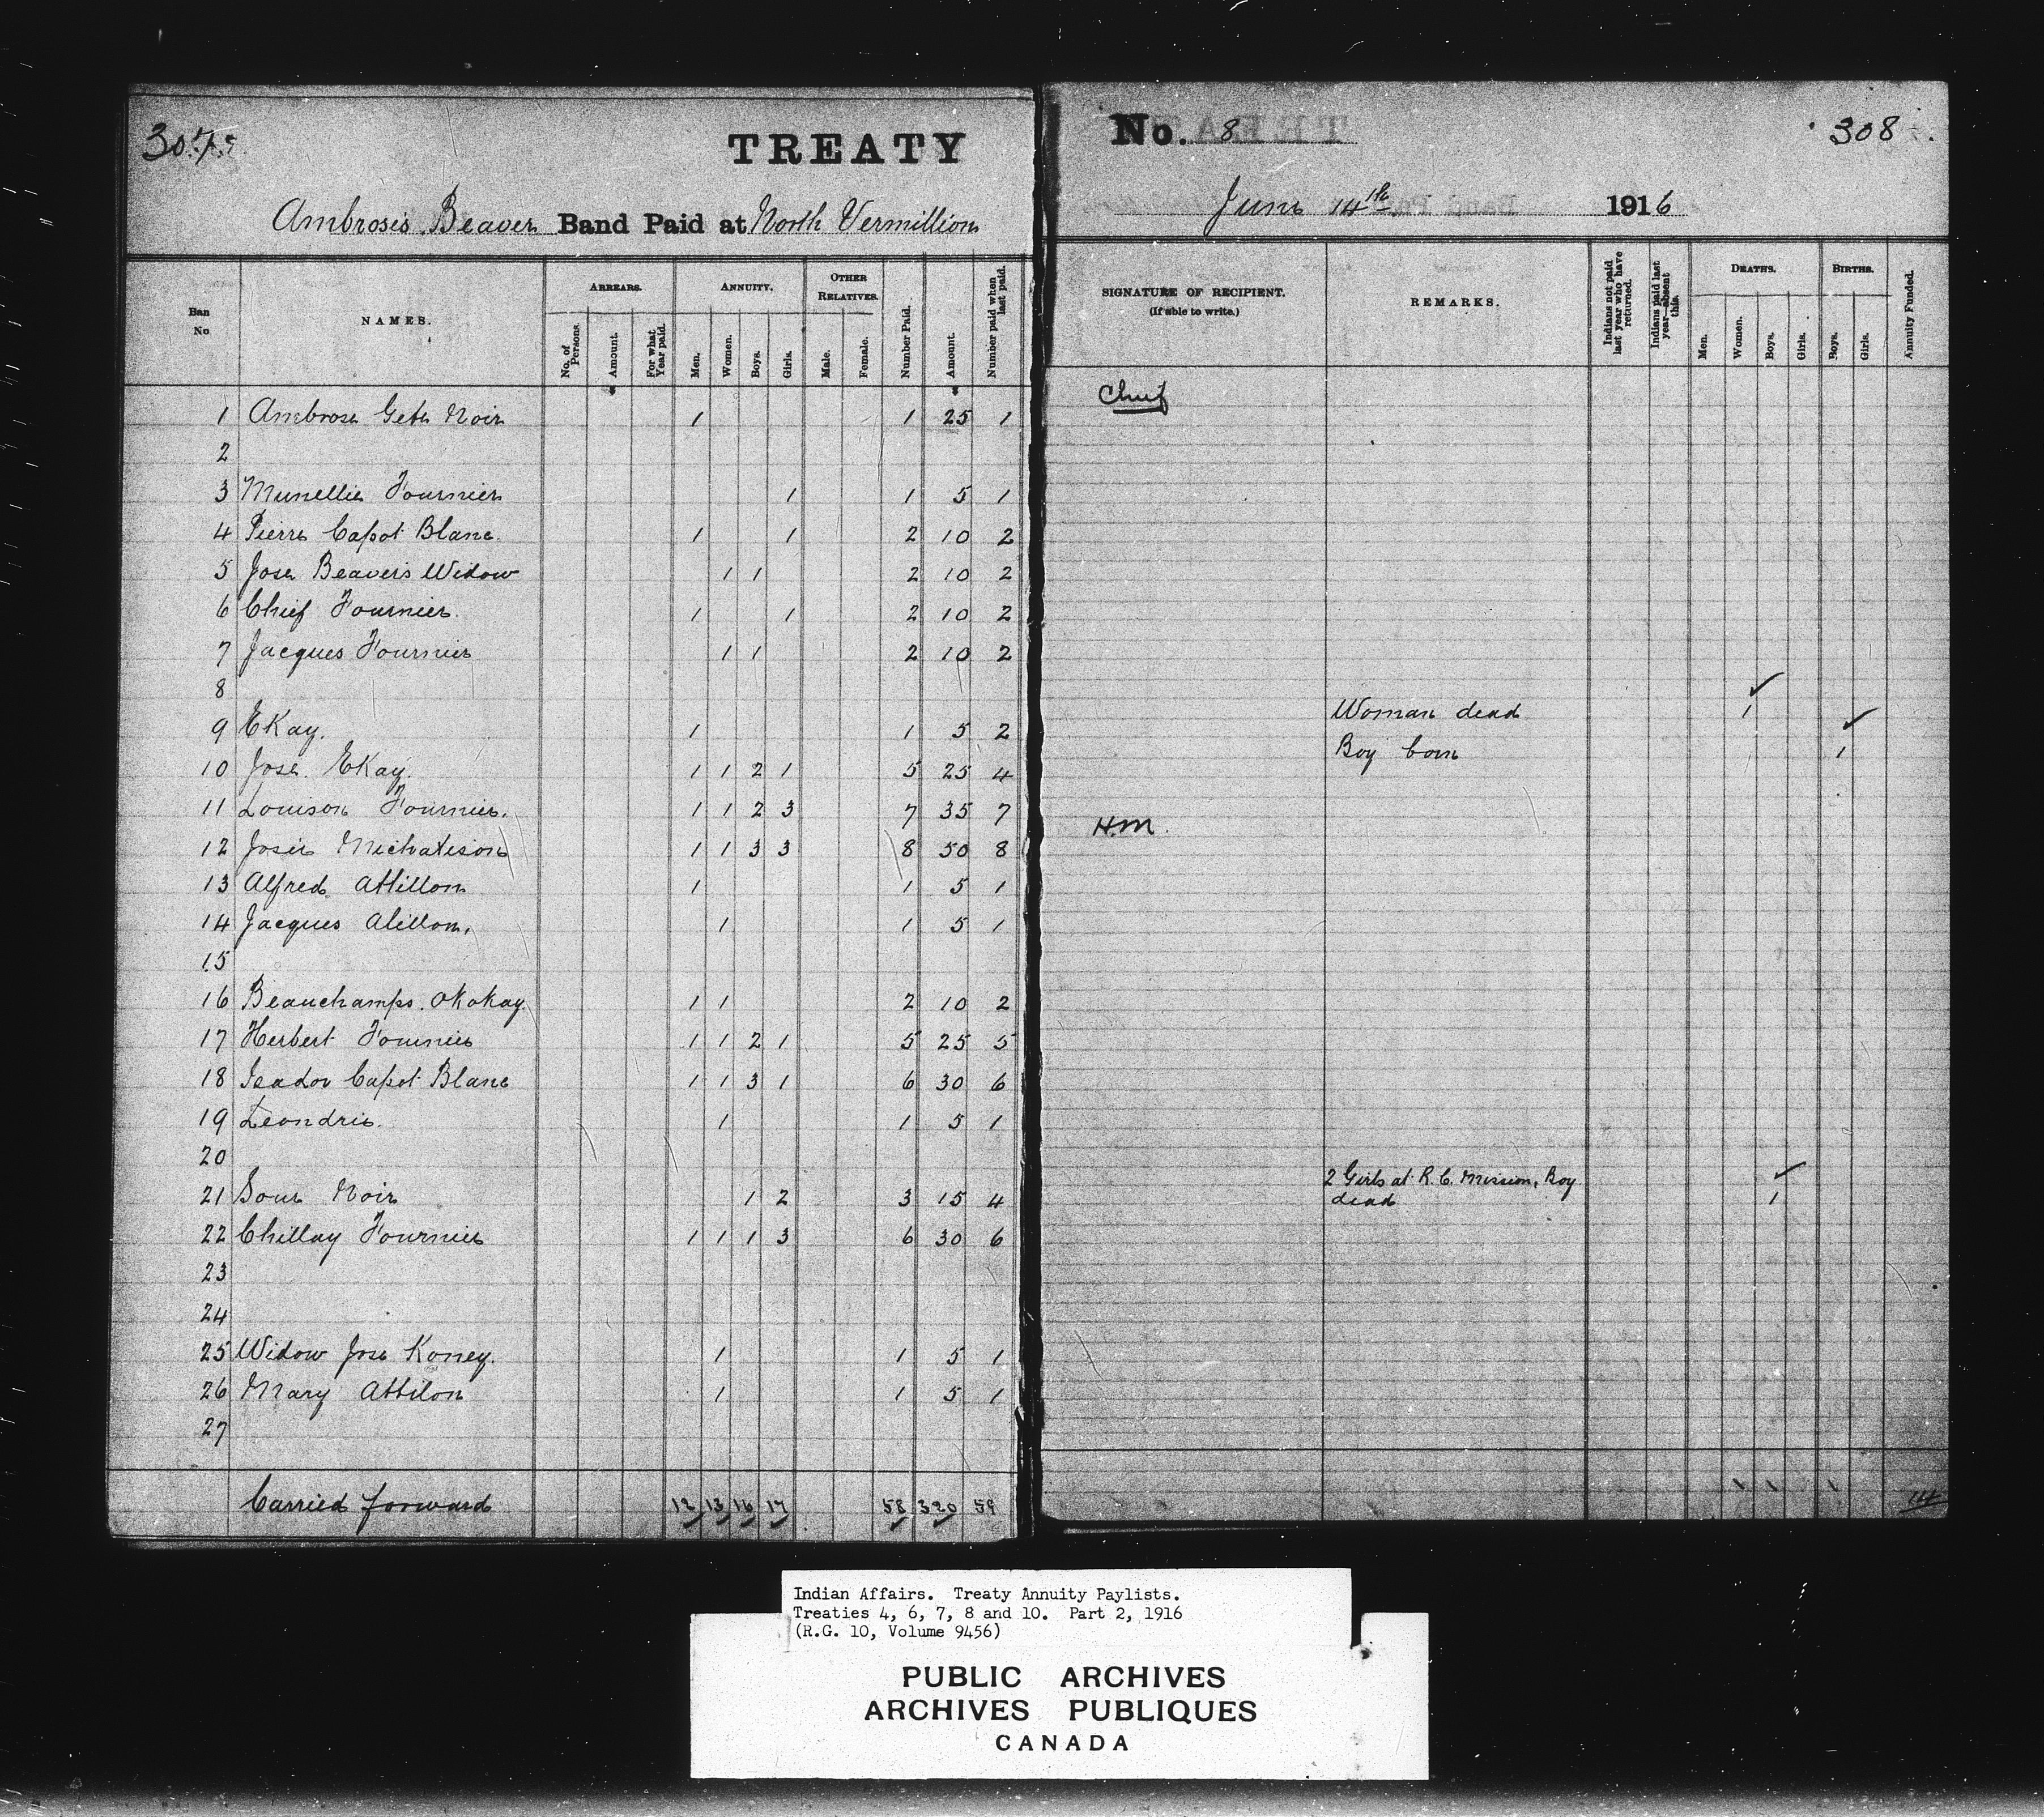 307
TREATY
Ambrose's Beaver Band Paid at North Vermillion
Ban No
NAMES.
ARREARS.
ANNUITY.
OTHER RELATIVES.
No. of Persons.
Amount.
For what Year paid.
Men.
Women.
Boys.
Girls.
Male.
Female.
Number Paid.
Amount.
Number paid when last paid.
1 Ambrose Gete Noir 1 1 25 1
2
3 Munellie Fournier 1 1 5 1
4 Pierre Capot Blanc. 1 1 2 10 2
5 Jose Beaver's Widow 1 1 2 10 2
6 Chief Fournier. 1 1 2 10 2
7 Jacques Fournier 1 1 2 10 2
8
9 Ekay. 1 1 5 2
10 Jose. Ekay. 1 1 2 1 5 25 4
11 Louison Fournier. 1 1 2 3 7 35 7
12 Josie Michatison 1 1 3 3 8 50 8
13 Alfred Attillon 1 1 5 1
14 Jacques Alillon, 1 1 5 1
15
16 Beauchamps. Okokay. 1 1 2 10 2
17 Herbert Fournier 1 1 2 1 5 25 5
18 Isador Capot Blanc 1 1 3 1 6 30 6
19 Leondrie. 1 1 5 1
20
21 Sour Noir 1 2 3 15 4
22 Chillay Fournier 1 1 1 3 6 30 6
23
24
25 Widow Jose Koney. 1 1 5 1
26 Mary Attilon 1 1 5 1
27
Carried forward 12 13 16 17 58 320 59
No. 8
308
June 14th 1916
SIGNATURE OF RECIPIENT.
(If able to write.)
REMARKS.
Indians not paid last year who have returned.
Indians paid last year—absent this.
DEATHS.
BIRTHS.
Men.
Women.
Boys.
Girls.
Boys.
Girls.
Annuity Funded.
Chief
Woman dead 1
Boy born 1
H.M.
2 Girls at R.C. Mission, Boy
dead 1
1 1 1
Indian Affairs. Treaty Annuity Paylists.
Treaties 4, 6, 7, 8 and 10. Part 2, 1916
(R.G. 10, Volume 9456)
PUBLIC ARCHIVES
ARCHIVES PUBLIQUES
CANADA